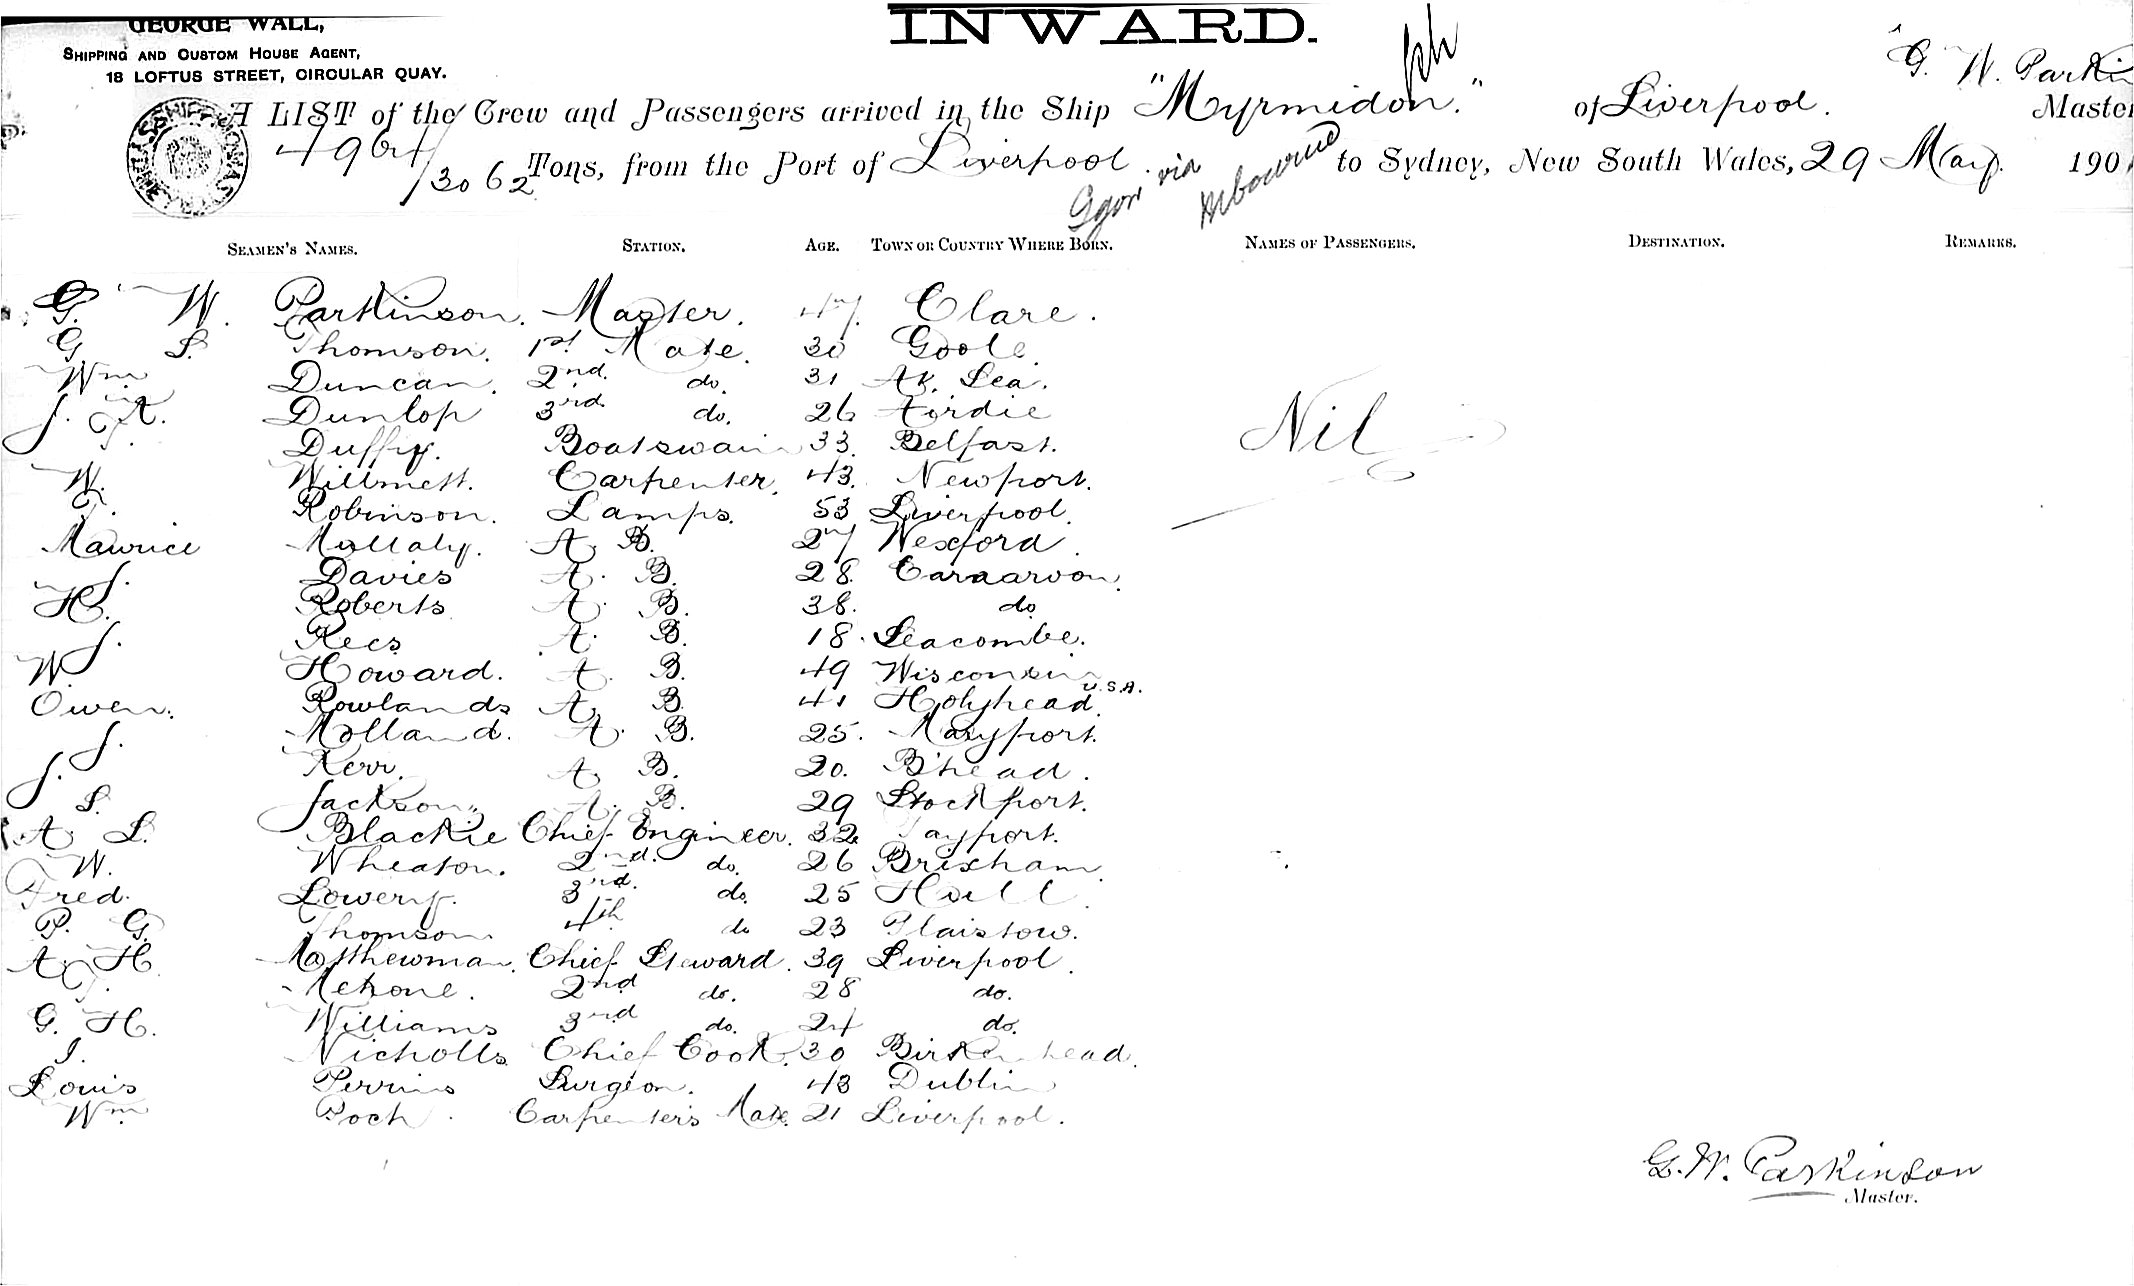 INWARD.
GEORGE WALL,
SHIPPING AND CUSTOM HOUSE AGENT,
18 LOFTUS STREET, CIRCULAR QUAY.
G. W. Parkin
A LIST of the Crew and Passengers arrived in the Ship "Myrmidon." of Liverpool. Master
4964/3062 Tons, from the Port of Liverpool via to Sydney, New South Wales, 29 May. 190
SEAMEN'S NAMES. STATION. AGE. TOWN OR COUNTRY WHERE BORN. NAMES OF PASSENGERS. DESTINATION. REMARKS.
G. W. Parkinson. Master. 47. Clare.
G S. Thomson. 1st Mate. 30 Goole.
Wm Duncan. 2nd. do. 31 At Sea.
J. A. Dunlop 3rd. do. 26 Airdie
Nil
J. Duffy. Boatswain 33. Belfast.
W. Willmett. Carpenter. 43. Newport.
J. Robinson. Lamps. 53 Liverpool.
Maurice Mullaly. A. B. 27 Wexford.
J. Davies A. B. 28. Carnarvon.
H. Roberts A. B. 38. do
J. Rees A. B. 18. Seacombe.
W. Howard. A. B. 49 Wisconsin U.S.A.
Owen. Rowlands A. B. 41 Holyhead.
J. Molland. A. B. 25. Maryport.
J. Kerr. A. B. 20. B'head.
S. Jackson. A. B. 29 Stockport.
A L. Blackie Chief Engineer. 32 Tayport.
W. Wheaton. 2nd. do. 26 Brixham.
Fred. Lowery. 3rd. do. 25 Hull.
P. G. Thomson 4th do 23 Plaistow.
A H. Matthewman. Chief Steward. 39 Liverpool.
J. 2nd do. 28 do.
G. H. Williams 3rd do. 24 do.
J. Nicholls Chief Cook. 30 Birkenhead.
Louis Perrins Surgeon. 43 Dublin
Wm Poch. Carpenter's Mate. 21 Liverpool.
G. W. Parkinson
Master.